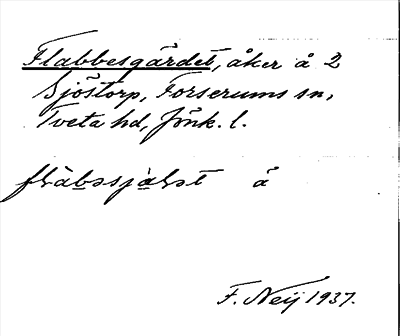 Flabbesgärdet, åker å 2
Sjöstorp, Forserums sn,
Tveta hd, Jönk. l.
å
F. Neij 1937.